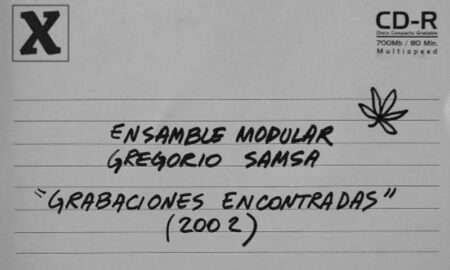 X
CD-R
Disco Compacto Grabable
700Mb / 80 Min.
Multispeed
ENSAMBLE MODULAR
GREGORIO SAMSA
"GRABACIONES ENCONTRADAS"
(2002)